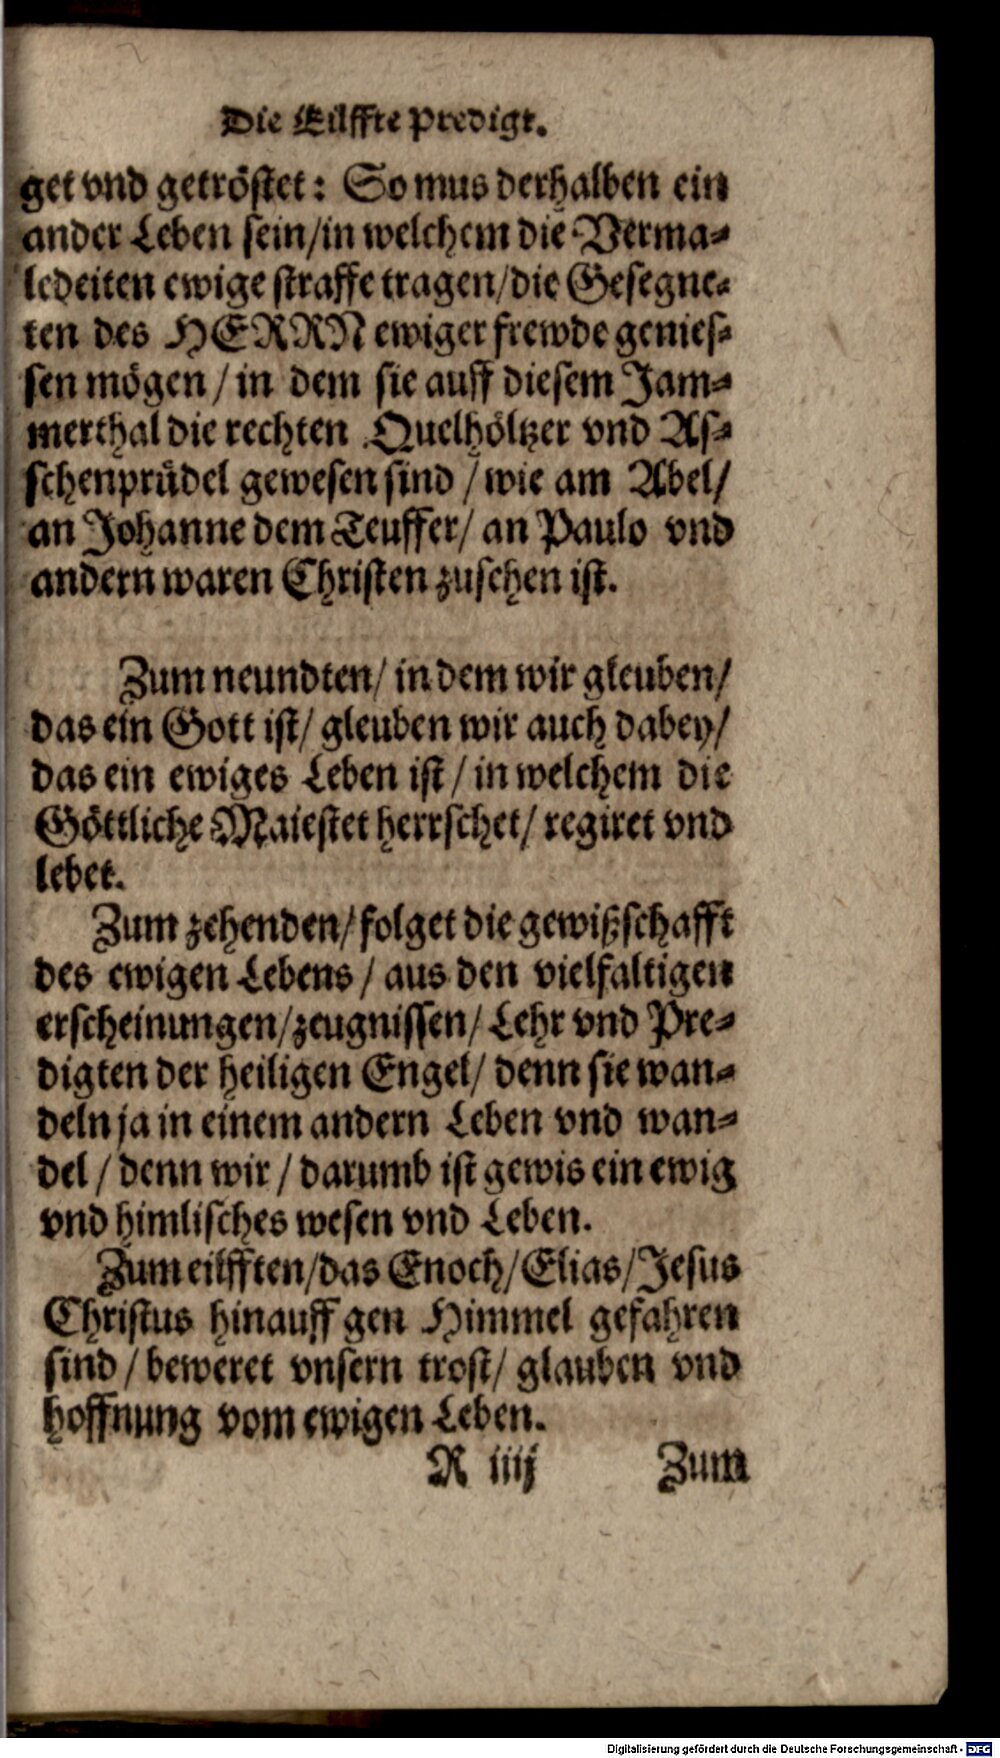 Die Eilffte Predigt.
get vnd getröstet: So mus derhalben ein
ander Leben sein/in welchem die Verma-
ledeiten ewige straffe tragen/die Gesegne-
ten des HERRN ewiger frewde genies-
sen mögen/in dem sie auff diesem Jam-
merthal die rechten Quelhöltzer vnd As-
schenprüdel gewesen sind/wie am Abel/
an Johanne dem Teuffer/an Paulo vnd
andern waren Christen zusehen ist.
Zum neundten/in dem wir gleuben/
das ein Gott ist/gleuben wir auch dabey/
das ein ewiges Leben ist/in welchem die
Göttliche Maiestet herrschet/regiret vnd
lebet.
Zum zehenden/folget die gewißschafft
des ewigen Lebens/aus den vielfaltigen
erscheinungen/zeugnissen/Lehr vnd Pre-
digten der heiligen Engel/denn sie wan-
deln ja in einem andern Leben vnd wan-
del/denn wir/darumb ist gewis ein ewig
vnd himlisches wesen vnd Leben.
Zum eilfften/das Enoch/Elias/Jesus
Christus hinauff gen Himmel gefahren
sind/beweret vnsern trost/glauben vnd
hoffnung vom ewigen Leben.
R iiij Zum
Digitalisierung gefördert durch die Deutsche Forschungsgemeinschaft - DFG